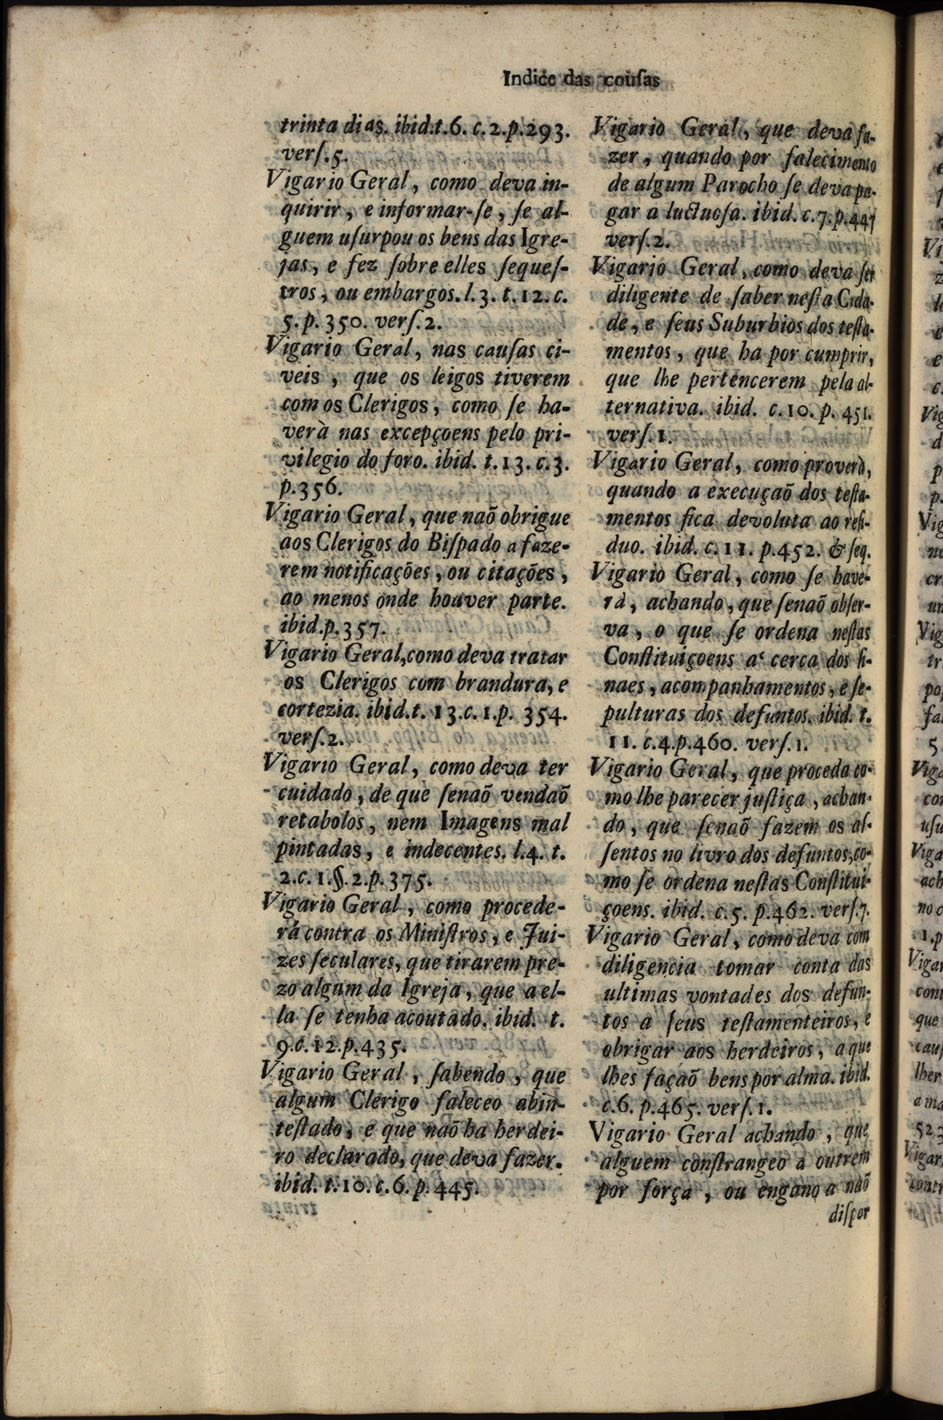 Indice das couſas
trinta dias. ibid.t.6. c.2.p.293.
verſ.5.
Vigario Geral, como deva in-
quirir, e informar-ſe, ſe al-
guem uſurpou os bens das Igre-
jas, e fez ſobre elles ſequeſ-
tros, ou embargos. l.3. t.12. c.
5. p. 350. verſ.2.
Vigario Geral, nas cauſas ci-
veis, que os leigos tiverem
com os Clerigos, como ſe ha-
verà nas excepçoens pelo pri-
vilegio do foro. ibid. t.13.c.3.
p.356.
Vigario Geral, que naõ obrigue
aos Clerigos do Biſpado a faze-
rem notificações, ou citações,
ao menos onde houver parte.
ibid.p.357.
Vigario Geral, como deva tratar
os Clerigos com brandura, e
cortezia. ibid.t. 13.c.1.p. 354.
verſ.2.
Vigario Geral, como deva ter
cuidado, de que ſenaõ vendaõ
retabolos, nem Imagens mal
pintadas, e indecentes. l.4. t.
2.c.1.§.2.p.375.
Vigario Geral, como procede-
rá contra os Miniſtros, e Jui-
zes ſeculares, que tirarem pre-
zo algum da Igreja, que a el-
la ſe tenha acoutado. ibid. t.
9.c.12.p.435.
Vigario Geral, ſabendo, que
algum Clerigo faleceo abin-
teſtado, e que naõ ha herdei-
ro declarado, que deva fazer.
ibid. t.10.c.6.p.445.
Vigario Geral, que deva fa-
zer, quando por falecimento
de algum Parocho ſe deva pa-
gar a luctuoſa. ibid. c.7.p.447
verſ.2.
Vigario Geral, como deva ſer
diligente de ſaber neſta Cida-
de, e ſeus Suburbios dos teſta-
mentos, que ha por cumprir,
que lhe pertencerem pela al-
ternativa. ibid. c.10. p. 451.
verſ.1.
Vigario Geral, como proverà,
quando a execuçaõ dos teſta-
mentos fica devoluta ao reſi-
duo. ibid. c.11. p.452. & ſeq.
Vigario Geral, como ſe have-
rà, achando, que ſenaõ obſer-
va, o que ſe ordena neſtas
Conſtituiçoens a cerca dos ſi-
naes, acompanhamentos, e ſe-
pulturas dos defuntos. ibid. t.
11. c.4.p.460. verſ.1.
Vigario Geral, que proceda co-
mo lhe parecer juſtiça, achan-
do, que ſenaõ fazem os aſ-
ſentos no livro dos defuntos, co-
mo ſe ordena neſtas Conſtitui-
çoens. ibid. c.5. p.462. verſ.7.
Vigario Geral, como deva com
diligencia tomar conta das
ultimas vontades dos defun-
tos a ſeus teſtamenteiros, e
obrigar aos herdeiros, a que
lhes façaõ bens por alma. ibid.
c.6. p.465. verſ.1.
Vigario Geral achando, que
alguem conſtrangeo a outrem
por força, ou engano a naõ
diſpor